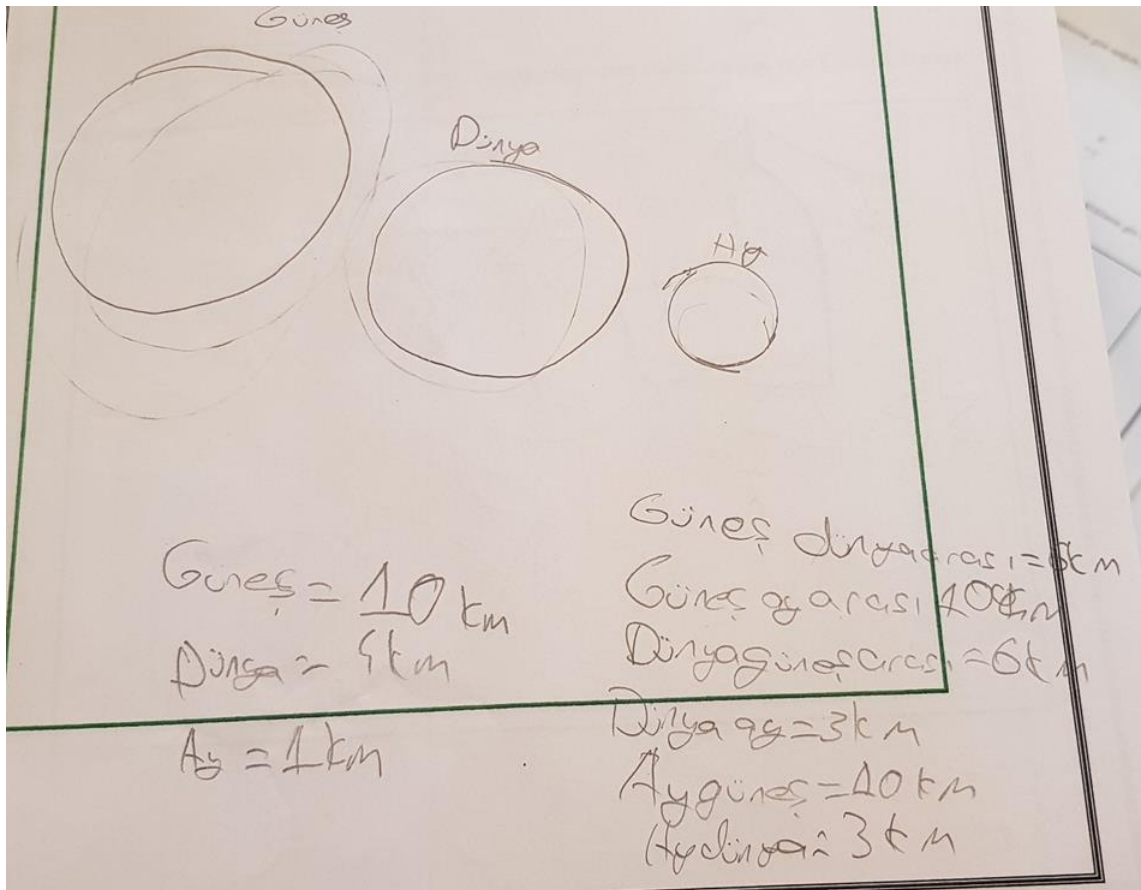 Güneş
Dünya
Ay
Güneş = 10 km
Dünya = 5km
Ay = 1km
Güneş dünya arası = 6km
Güneş ay arası 10km
Dünya güneş arası = 6km
Dünya ay = 3km
Ay güneş = 10 km
Ay dünya = 3km